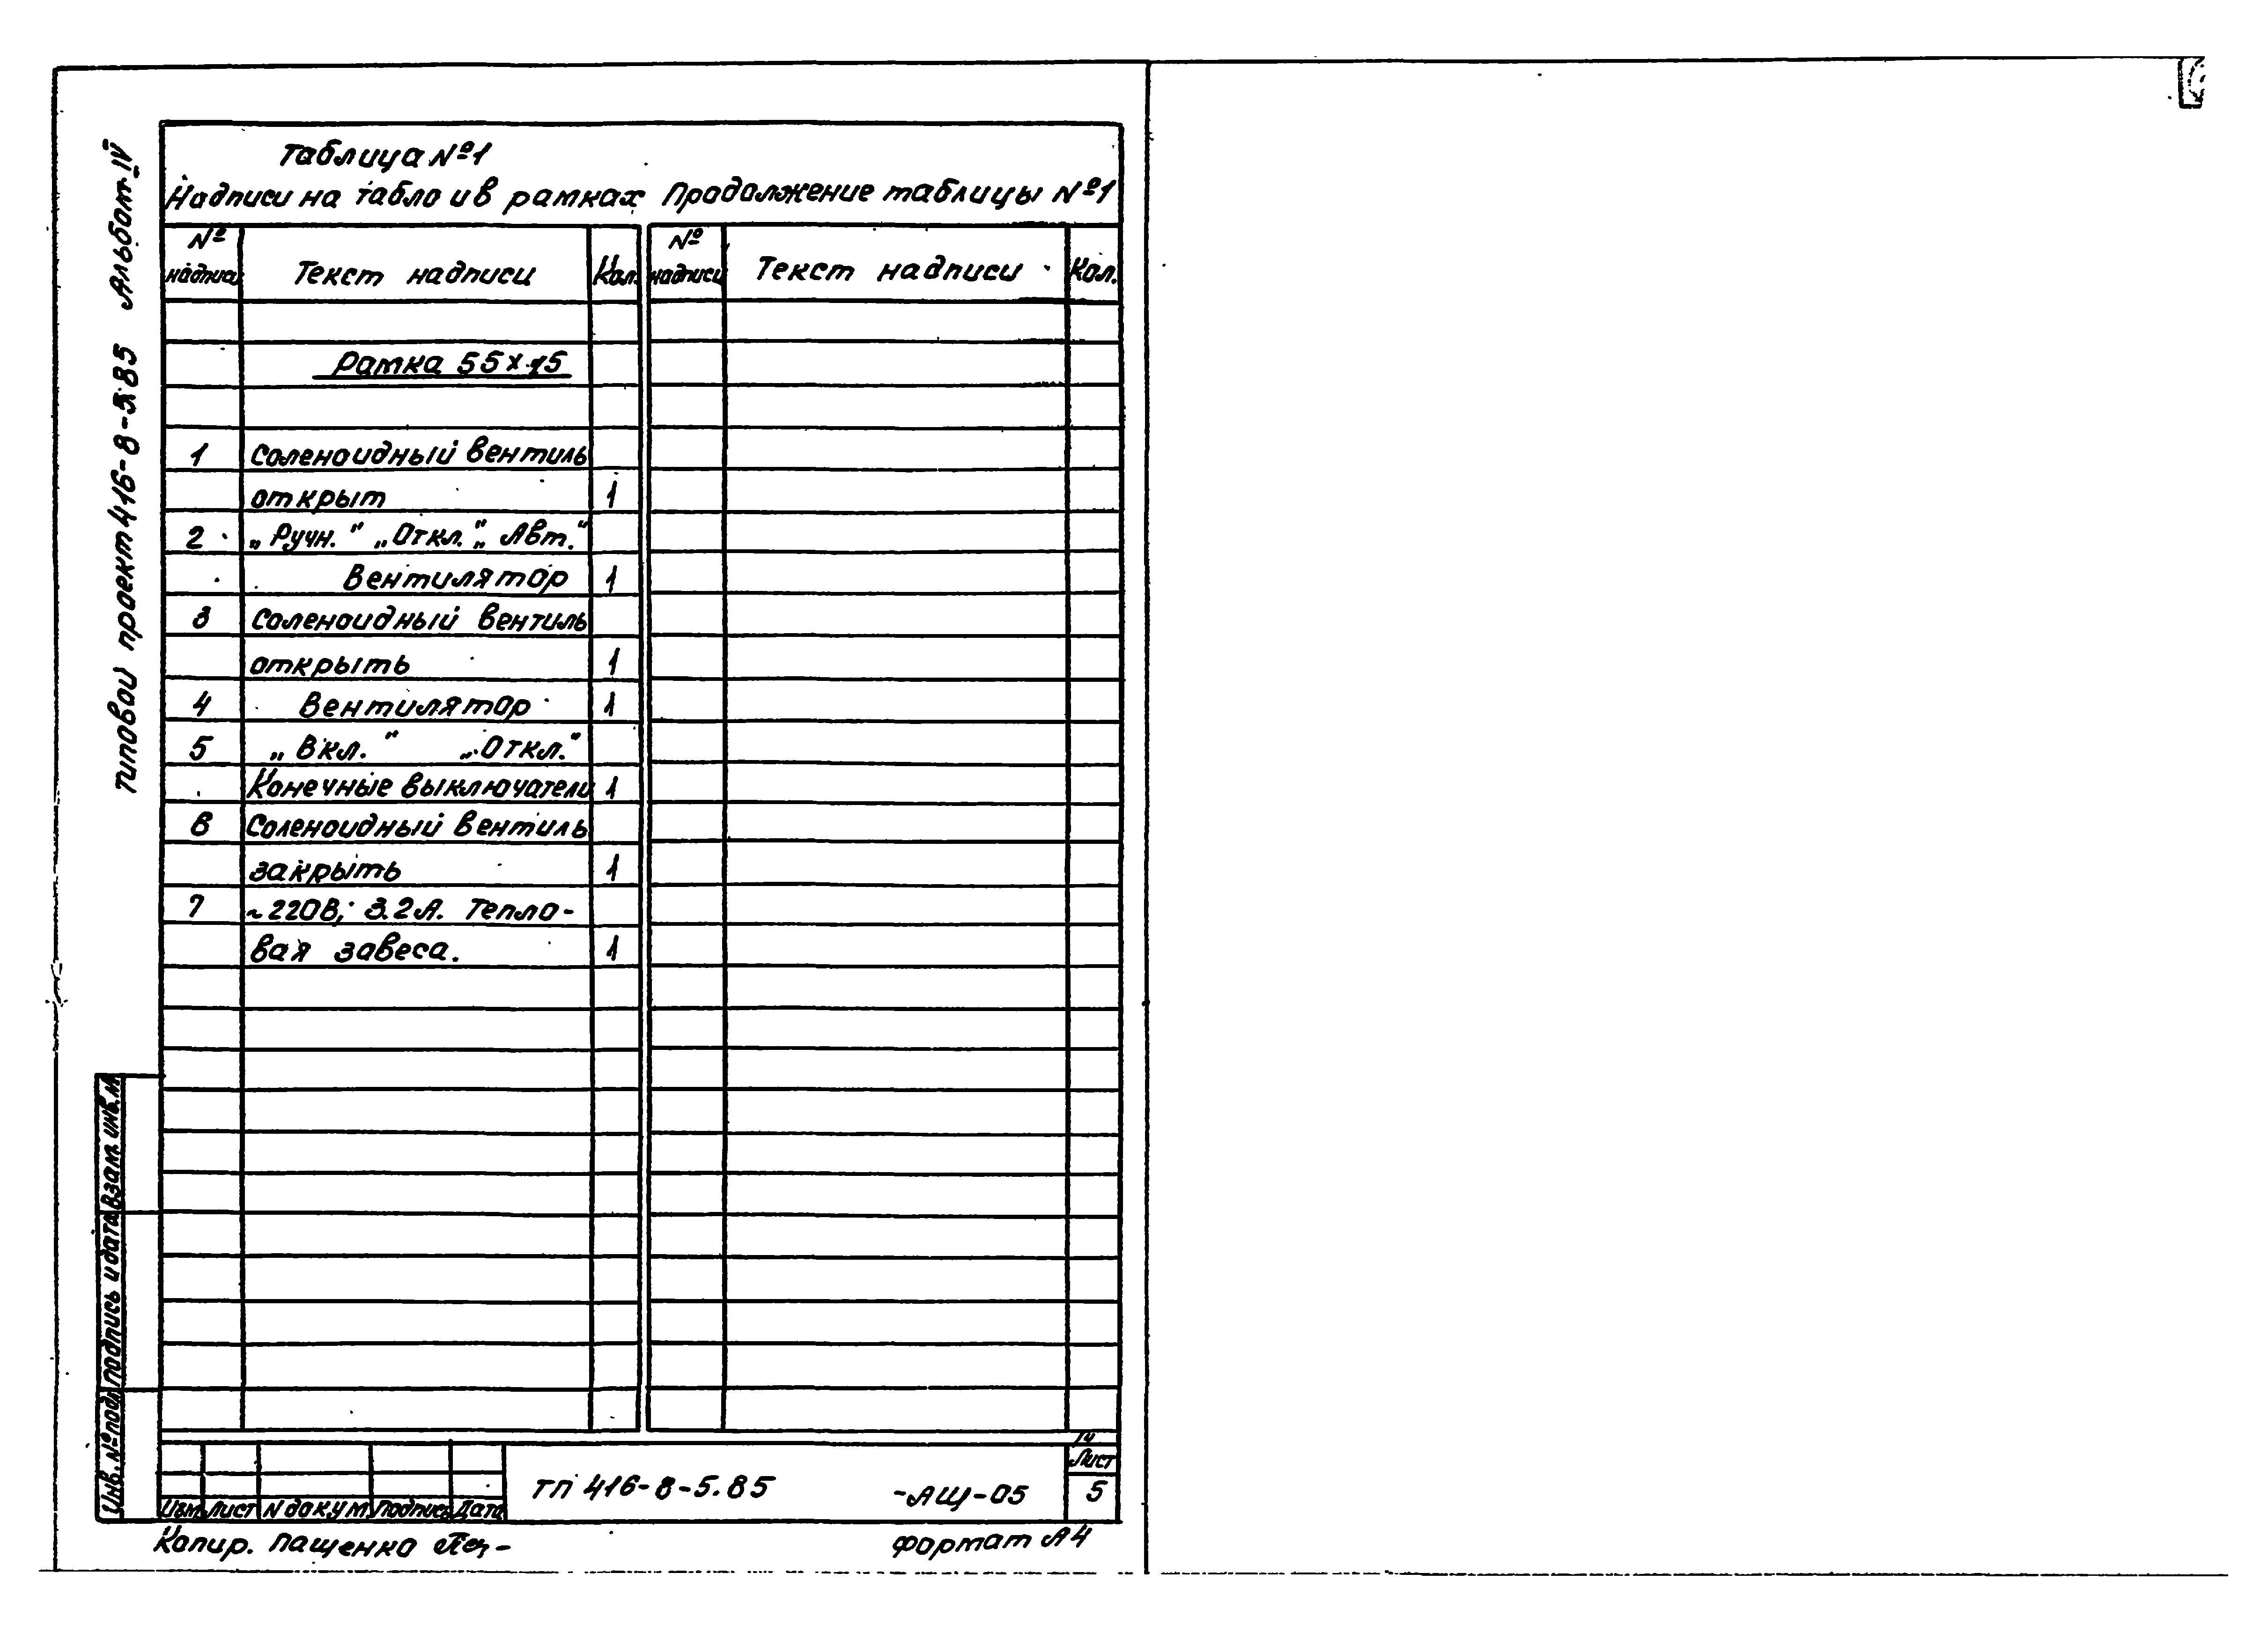 Типовой проект 416-8-5.85 Альбом IV
Таблица №1
Надписи на табло и в рамках
Продолжение таблицы №1
№ надписи Текст надписи Кол.
№ надписи Текст надписи Кол.
Рамка 55х15
1 Соленоидный вентиль
открыт 1
2 „Ручн.” „Откл.” „Авт.”
Вентилятор 1
3 Соленоидный вентиль
открыть 1
4 Вентилятор 1
5 „Вкл.” „Откл.”
Конечные выключатели 1
6 Соленоидный вентиль
закрыть 1
7 ~220В; 3.2А. Тепло-
вая завеса. 1
Взам. инв. №
Подпись и дата
Инв. № подл
14
Изм Лист N докум Подпись Дата
ТП 416-8-5.85 -АЩ-05
Лист
5
Копир. Пащенко
Формат А4